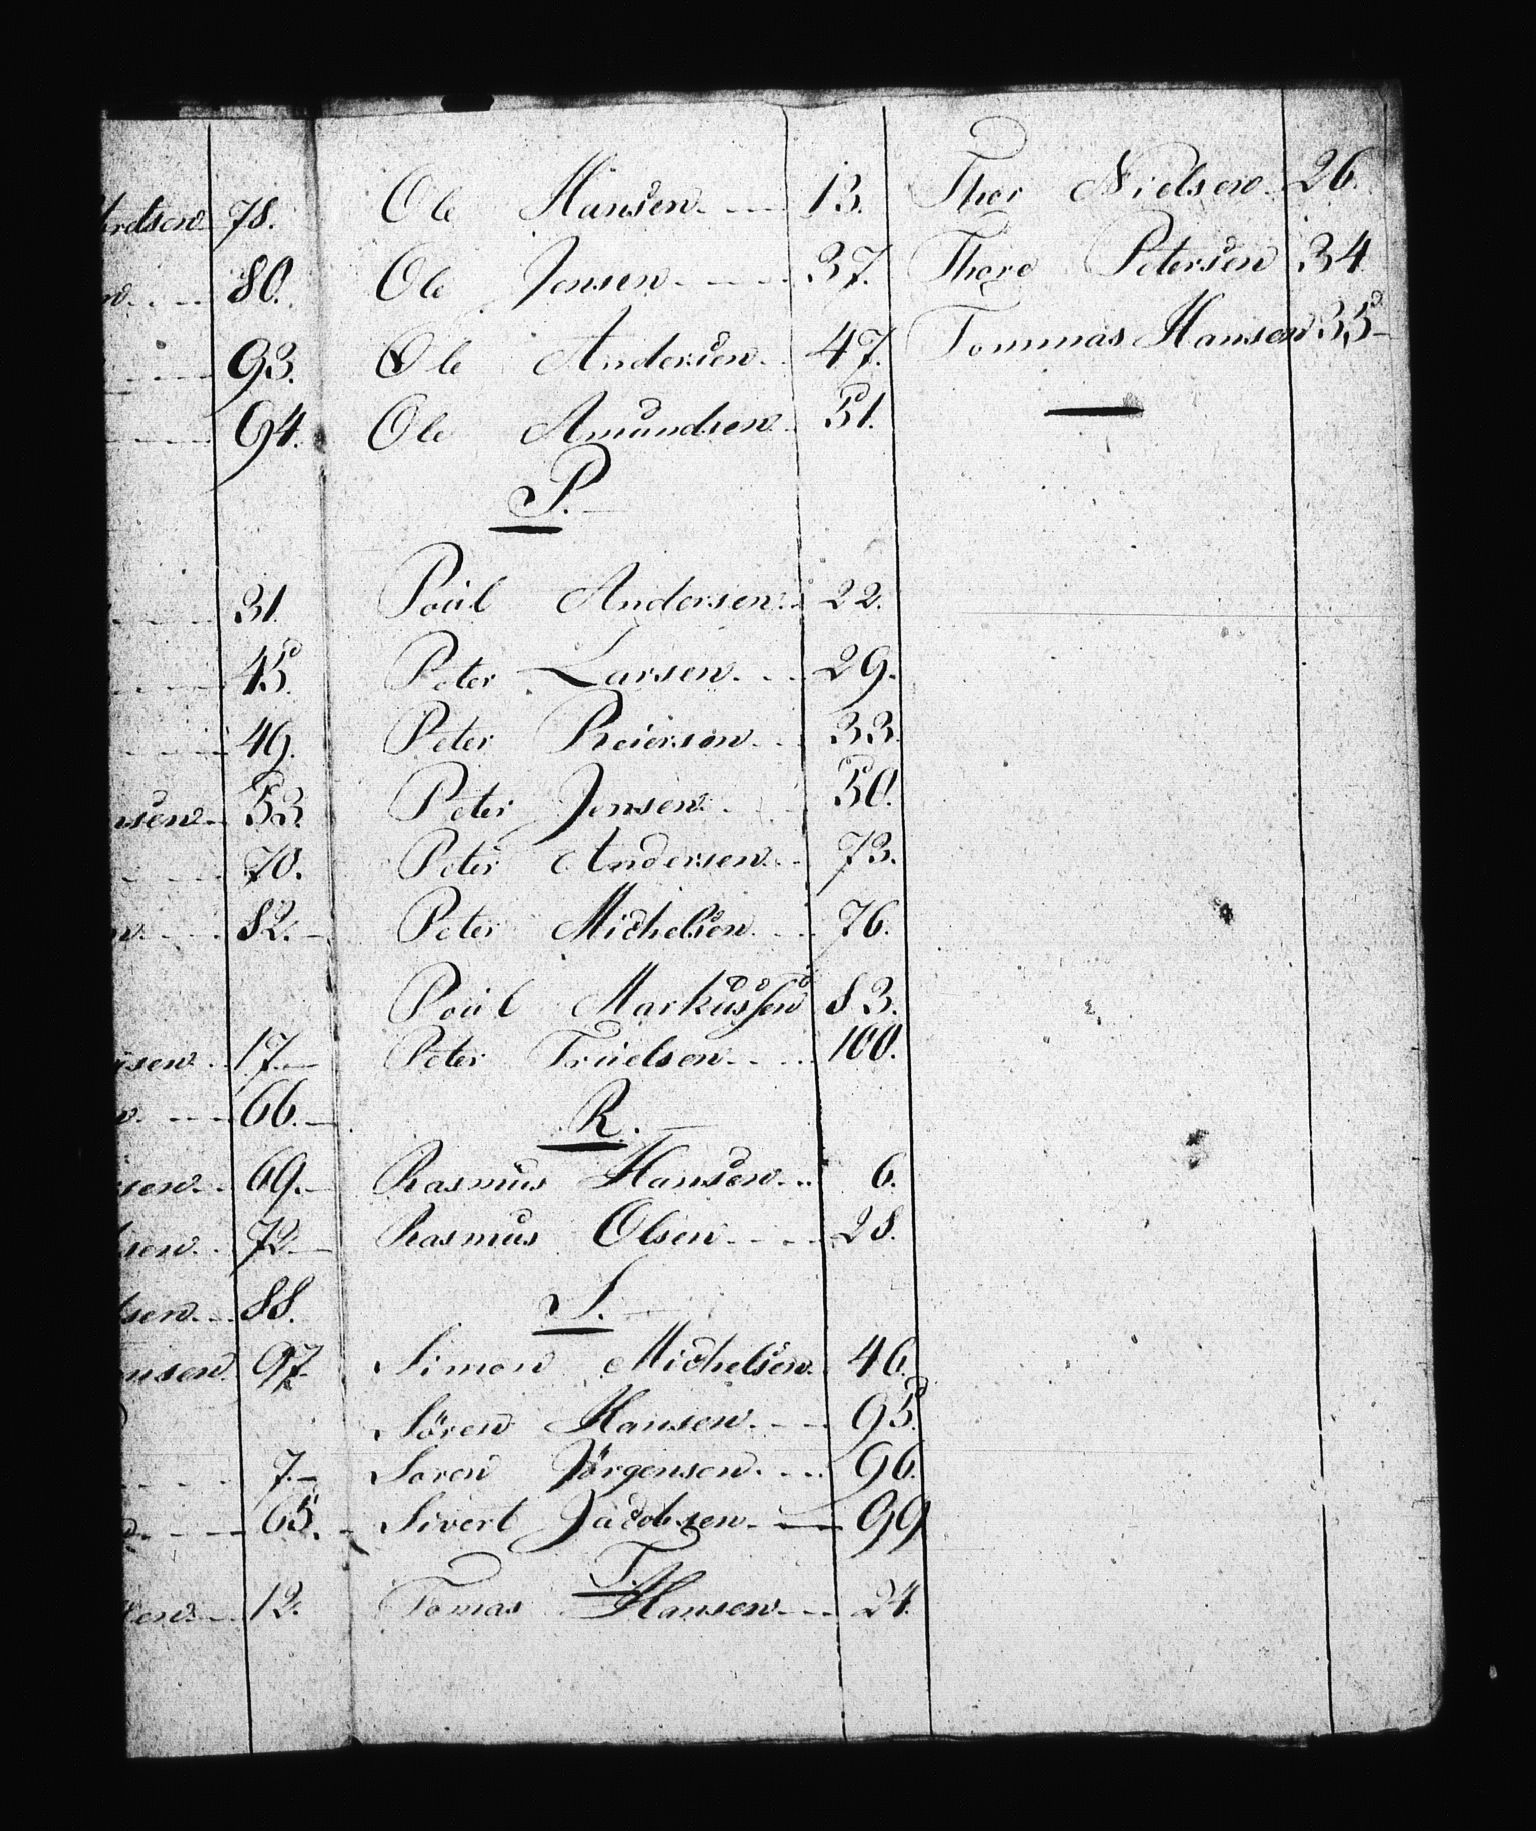 rdsen 78.
80.
93.
94.
31.
45.
49.
nsen 53.
70.
82.
sen 17.
66.
sen 69.
sen 72.
sen 88.
nsen 97
7.
65.
sen 12.
Ole Hansen 13.
Ole Jensen 37.
Ole Andersen 47.
Ole Amundsen 51.
P.
Poül Andersen 22.
Peter Larsen 29.
Peter Reiersen 33.
Peter Jensen 50.
Peter Andersen 73.
Peter Michelsen 76.
Poül Markussen 83.
Peter Trüelsen 100.
R.
Rasmus Hansen 6.
Rasmus Olsen 28.
S.
Simon Michelsen 46.
Sören Hansen 95.
Soren Jörgensen 96.
Sivert Jacobsen 99
T.
Tomas Hansen 24.
Thor Nielsen 26.
Thore Petersen 34
Tommas Hansen 35